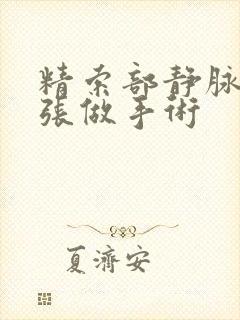 精索部静脉
张做手術
夏濟安